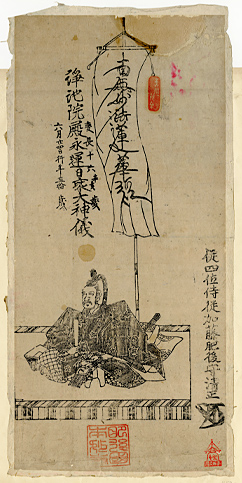 從四位侍從加藤肥後守清正
南無妙法蓮華経
慶長十六辛亥歳
淨池院殿永運日乘大神儀
六月廿四日行年五拾